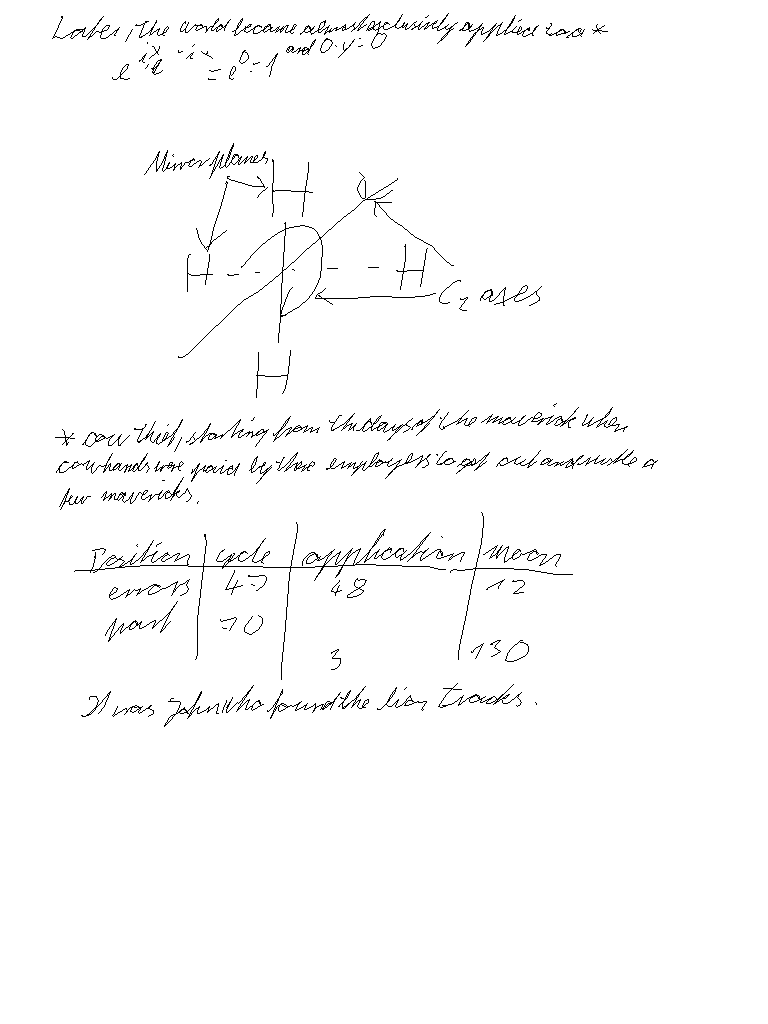 Later, the world became almost exclusively applied to a *
e^{ix} e^{-ix} = e^0 = 1 and 0 · y = 0
Mirror planes
H
H H
C2 axes
H
* cow thief, starting from the days of the maverick when
cowhands were paid by those employers to get out and rustle a
few mavericks.
Position cycle application moon
errors 47 48 12
part 70
3 130
It was John who found the lion tracks.